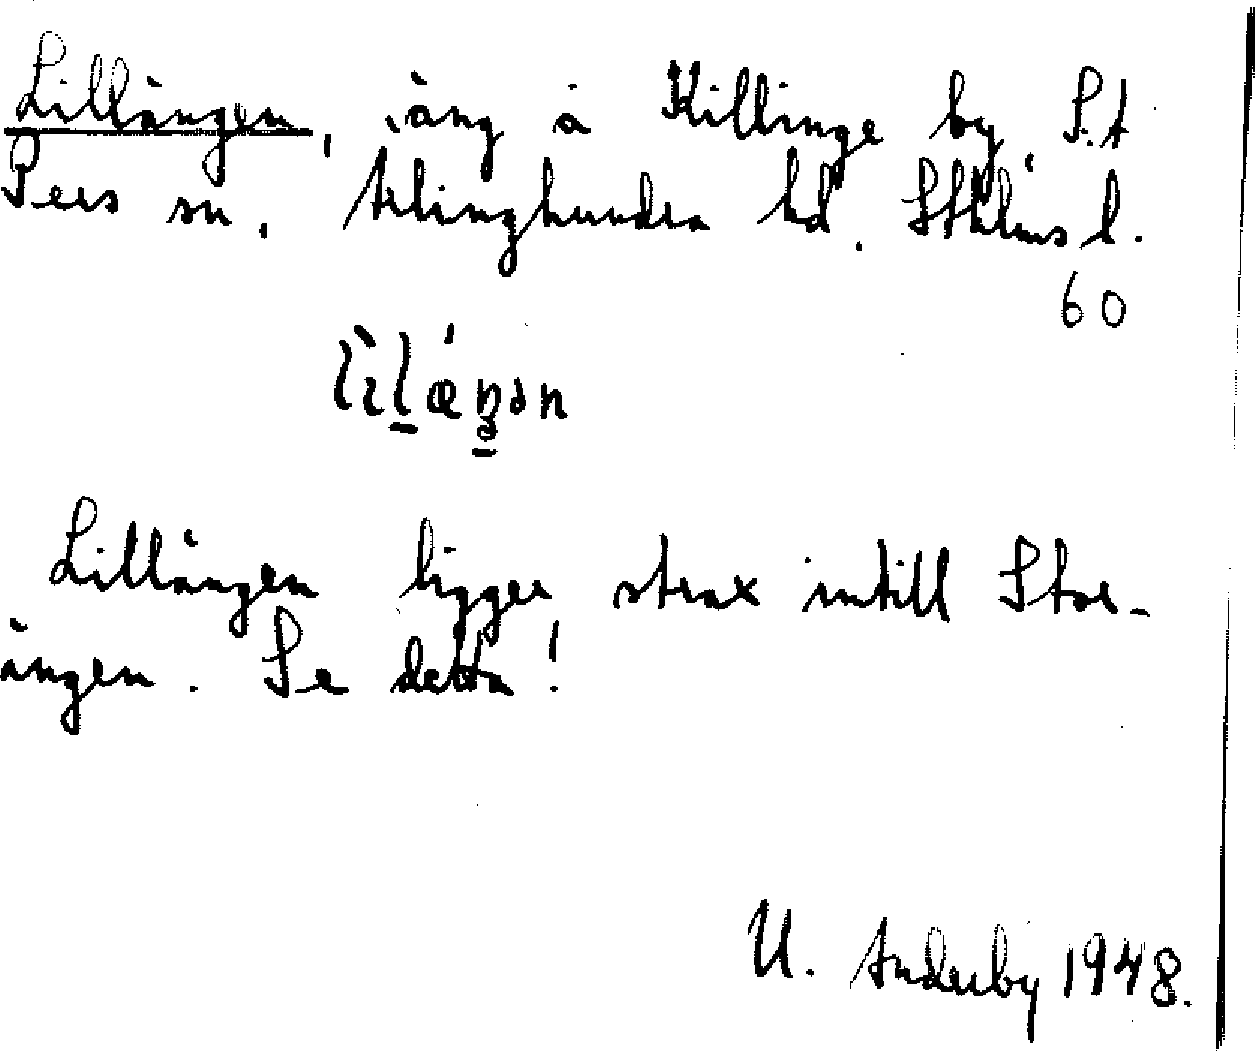 Lillängen, äng å Killinge by, S:t
Pers sn, Ärlinghundra hd, Sthlms l.
60
Lillängen ligger strax intill Stor-
ängen. Se detta!
U. Anderby 1948.